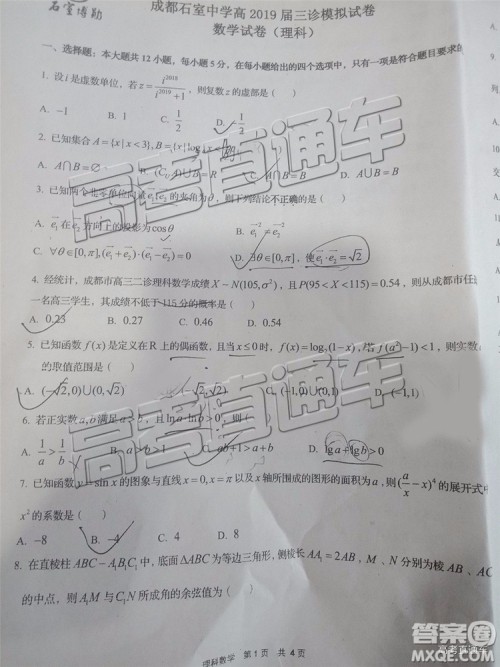 石室博勤
成都石室中学高2019届三诊模拟试卷
数学试卷（理科）
一、选择题：本大题共12小题，每小题5分，在每小题给出的四个选项中，只有一个是符合题目要求的
1. 设i是虚数单位，若z = i^2018 / (i^2019 + 1)，则复数z的虚部是( )
A. -1 B. 1 C. 1/2 D.
2. 已知集合A={x|x<3},B={x|log
A. A∩B=∅ B. ∪B=R C. A∩B= D. A∪B=
3. 已知两个 单位向量 的夹角为θ，则下列结论不正确的是( )
A. 方向上的投影为cosθ B. e₁²=e₂²
C. ∀θ∈[0,π],(e₁+e₂)·(e₁-e₂)=0 D. θ∈[0,π]，使e₁·e₂=√2
4. 经统计，成都市高三二诊理科数学成绩X~N(105,σ²)，且P(95<X≤115)=0.54，则从成都市任
一名高三学生，其成绩不低于115分的概率是( )
A. 0.23 B. 0.27 C. 0.46 D. 0.54
5. 已知函数f(x)是定义在R上的偶函数，且当x≤0时，f(x)=log₂(1-x)，若f(a²-1)<1，则实
的取值范围是( )
A. (-√2,0)∪(0,√2) B. C. (-1,0)∪(0,1) D. (-1,1)
6. 若正实数a,b满足a>b，且ln a·ln b>0，则( )
A. 1/a>1/b B. C. D. lga+lgb>0
7. 已知函数y=sin x的图象与直线x=0,x=π以及x轴所围成的图形的面积为a，则(a/x - x)⁴的展开式中
x²的系数是( )
A. -8 B. -4 C. 4 D. 8
8. 在直棱柱ABC-A₁B₁C₁中，底面△ABC为等边三角形，侧棱长AA₁=2AB，M、N分别为棱AB、AC
的中点，则A₁M与C₁N所成角的余弦值为( )
理科数学 第1页 共4页
高考直通车
答案圈
MXQE.COM